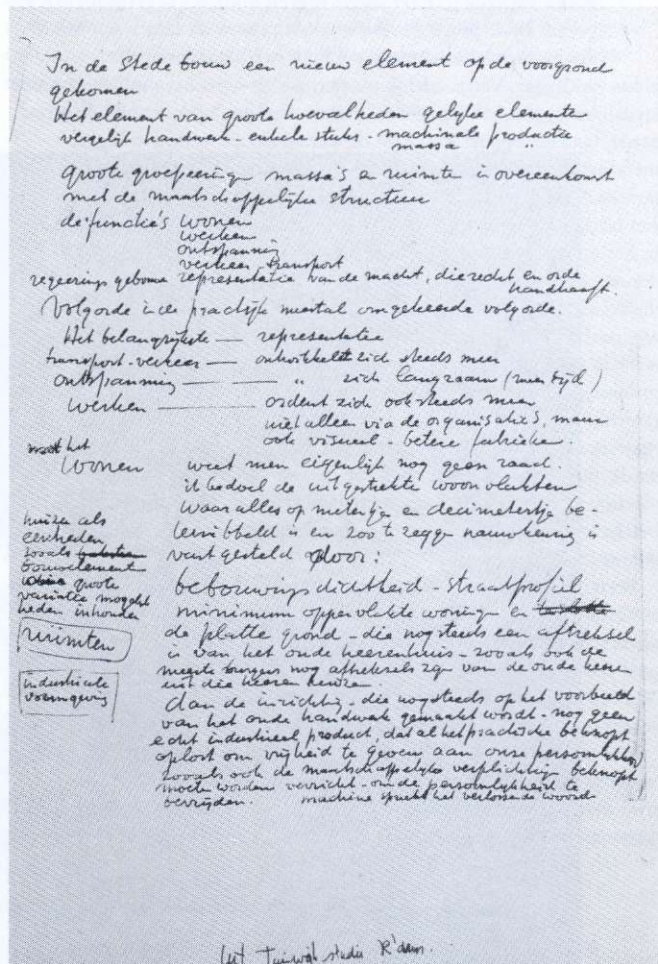 In de stedebouw een nieuw element op de voorgrond
gekomen
Het element van groote hoevalheden gelyke elemente
vergelyk handwerk - enkele stuks - machinale productie
massa "
groote groepeeringen massa's en ruimten in overeenkomst
met de maatschappelyke structuur
de functie's wonen
werken
ontspanning
verkeer transport
regeerings gebouw representatie van de macht, die recht en orde
handhaaft.
Volgorde in de practyk meestal omgekeerde volgorde.
Het belangrykste — representatie
transport-verkeer — ontwikkelt zich steeds meer
ontspanning — — " zich langzaam (meer tyd)
werken — ordent zich ook steeds meer
niet alleen via de organisatie's, maar
ook visueel - betere fabrieken.
met het
wonen weet men eigenlyk nog geen raad.
ik bedoel de uitgestrekte woonvlakten
waar alles op metertje en decimetertje be-
kribbeld is en zoo te zeggen nauwkeurig is
vast gesteld door:
huizen als
eenheden
zooals
bouwelement
groote
variatie mogelyk
heden inhouden
ruimten
industrieele
vormgeving
bebouwings dichtheid - straatprofiel
minimum oppervlakte woningen en
de platte grond - die nog steeds een aftreksel
is van het oude heerenhuis - zooals ook de
meeste burgers nog aftreksels zyn van de oude heeren
uit die heeren huizen.
dan de inrichting - die nog steeds op het voorbeeld
van het oude handwerk gemaakt wordt - nog geen
echt industrieel product, dat al het practische beknopt
oplost om vryheid te geven aan onze persoonlykheid
zooals ook de maatschappelyke verplichting beknopt
moeten worden verricht - om de persoonlykheid te
bevryden. machine spreekt het verlossende woord
uit Tuinwyk studie R'dam.